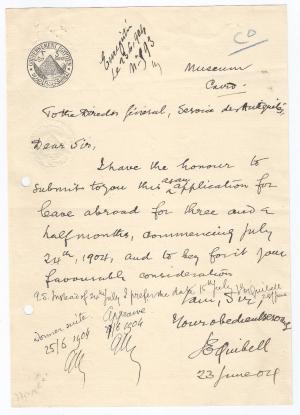 Enregistré
le 25.6.904
Museum
Cairo.
To the Director General, Service des Antiquités
Dear Sir,
I have the honour to
submit to you this as an application for
leave abroad for three and a
half months, commencing July
24th, 1904, and to beg for it your
favourable consideration
P.S. Instead of 24th July I prefer the date 15th July J.E. Quibell
I am, Sir,
Your obedient servant
JEQuibell
23 June 04
Donner suite
25/6 1904
Approuvé
1904